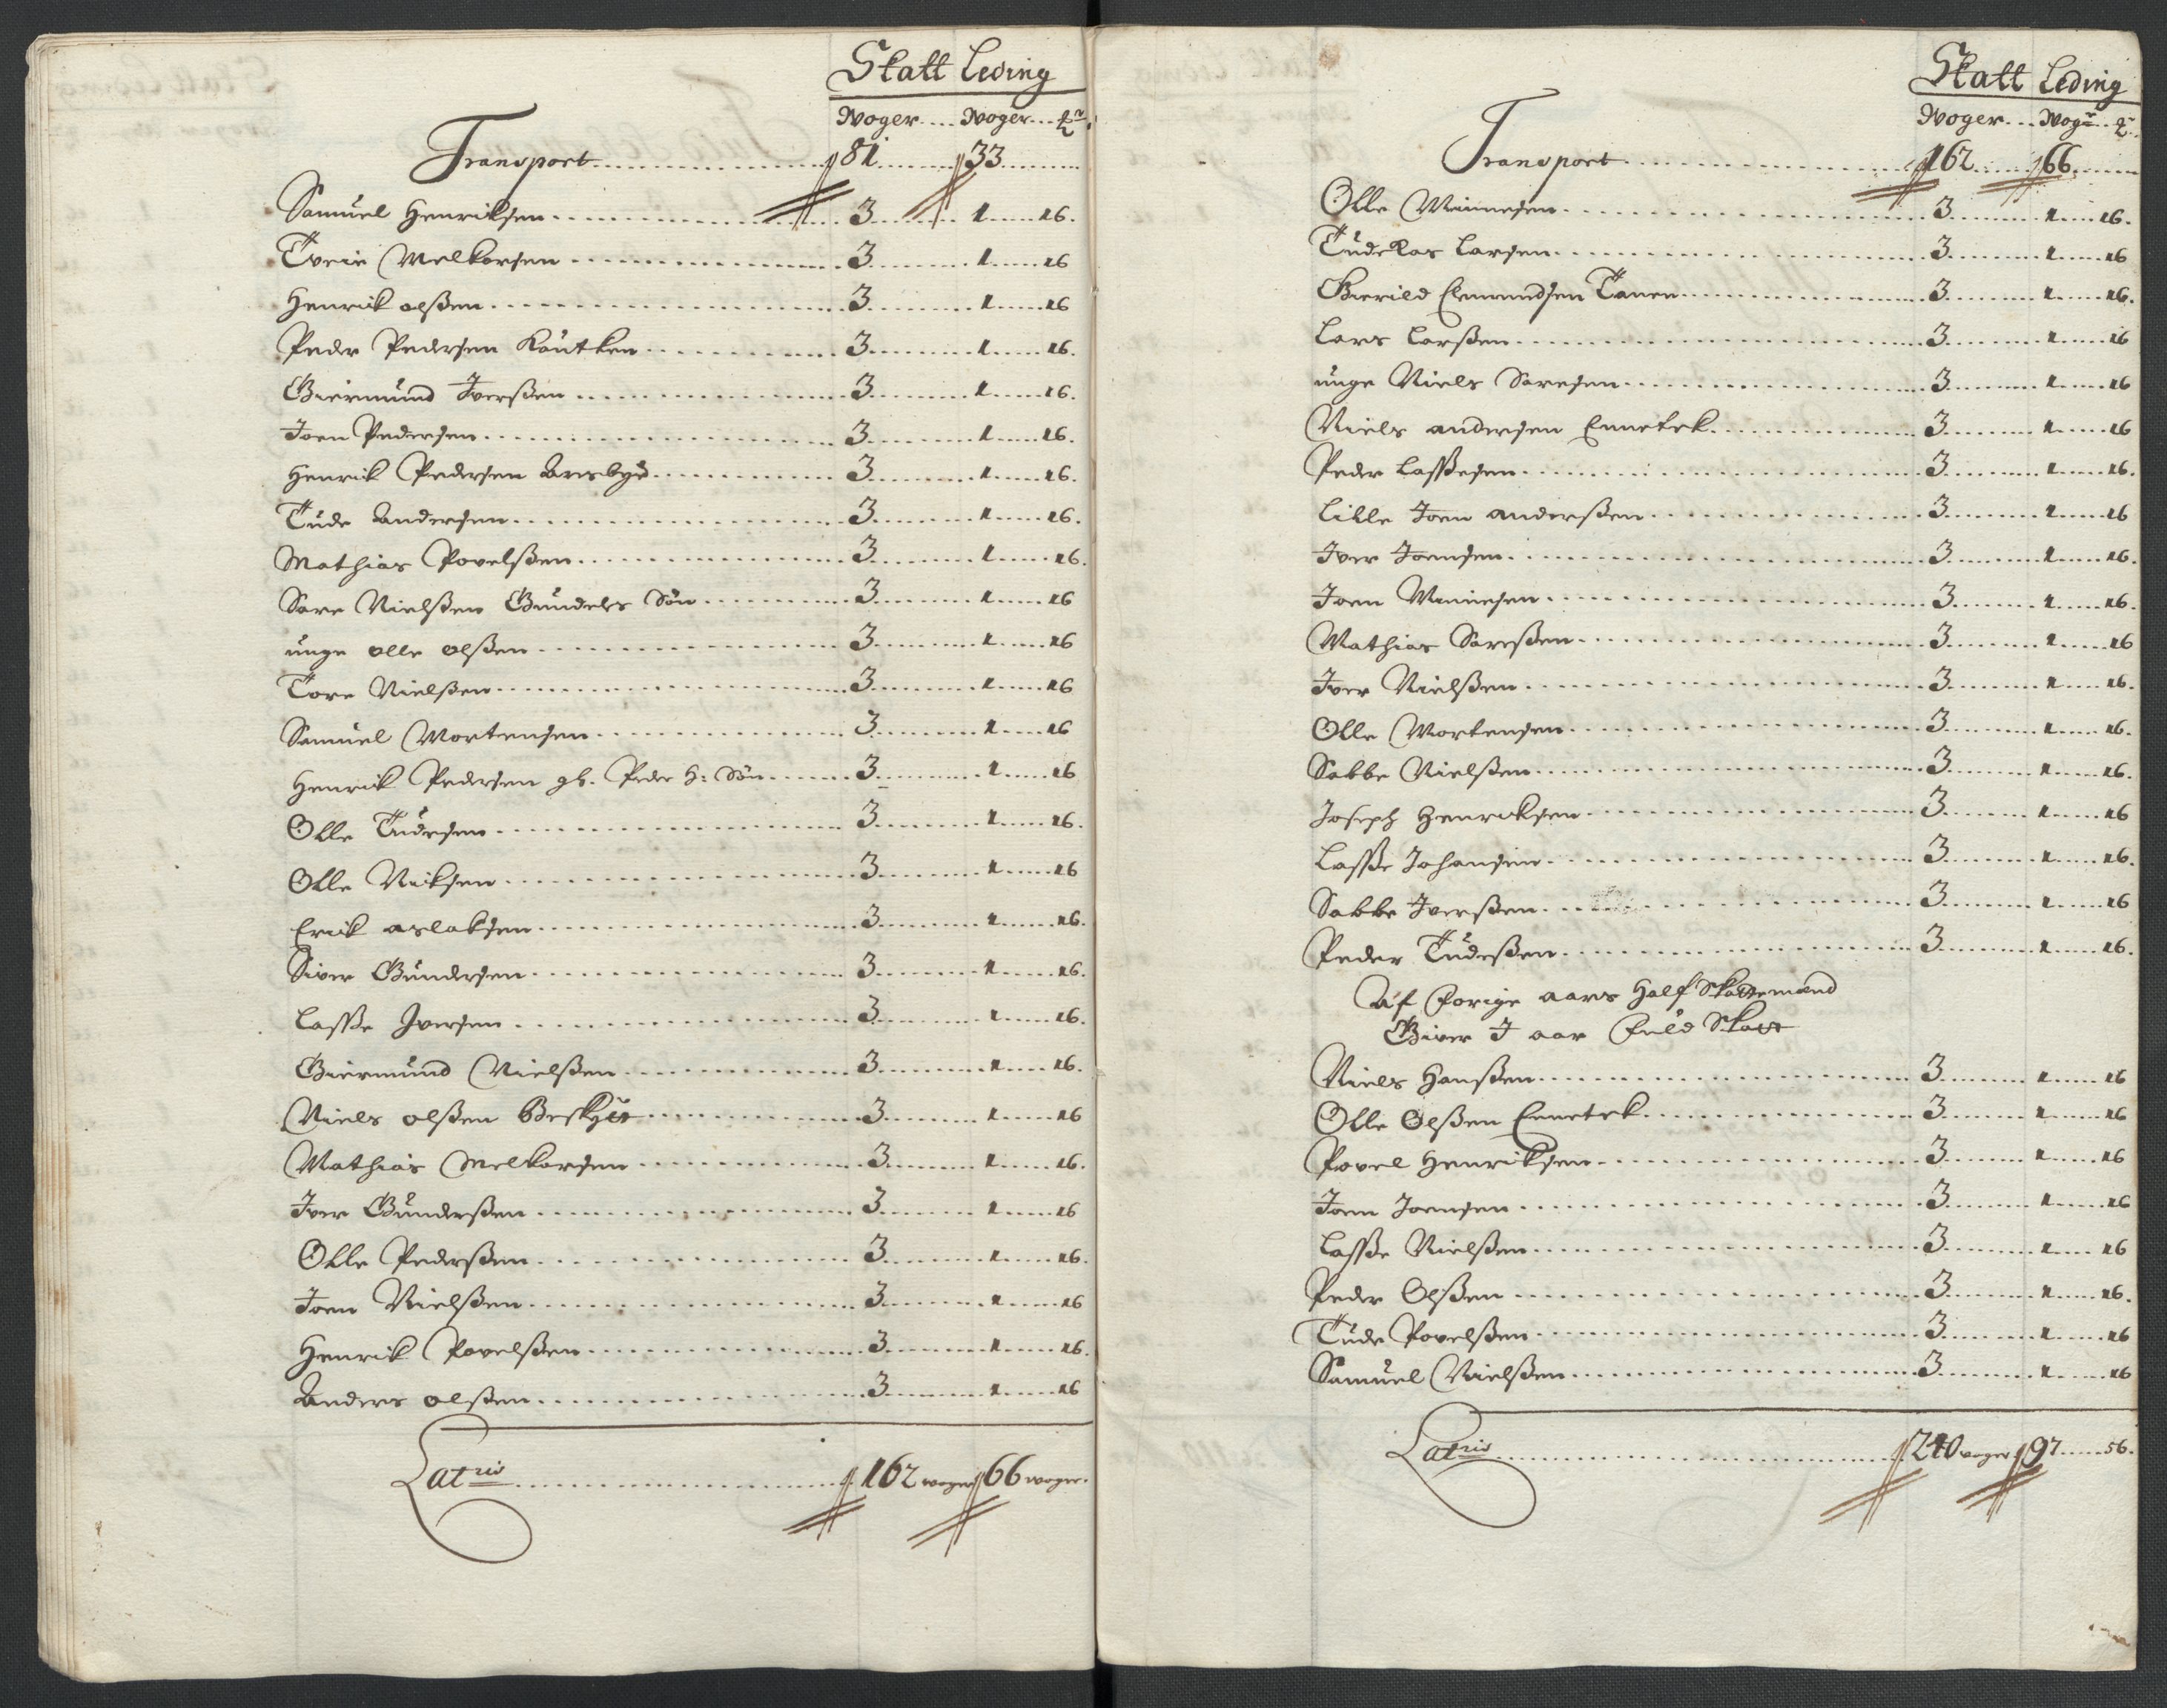 Skatt Leding
Woger Woger
Transport 81 33
Samuel Henriksen 3 1 16.
Tveir Melkorsen 3 1 16
Henrick olßen 3 1 16
Peder Pedersen Kautken 3 1 16.
Giermund Iverßen 3 1 16.
Joen Pedersen 3 1 16.
Henrik Pedersen Aresbye 3 1 16.
Tude Andersen 3 1 16.
Mathias Povelßen 3 1 16.
Sare Nielßen Gundels Søn 3 1 16
unge olle olßen 3 1 16
Tore Nielßen 3 1 16
Samuel Mortensen 3 1 16
Henrik Pedersen gl. Peder H: Søn 3 1 16
Olle Tudesen 3 1 16.
Olle Nicksen 3 1 16
Erick aslaksen 3 1 16.
Siver Gundersen 3 1 16.
Lasße Iversen 3 1 16.
Giermund Nielßen 3 1 16.
Niels olßen 3 1 16
Mathias Melkorsen 3 1 16.
Iver Gunderßen 3 1 16
Olle Pederßen 3 1 16.
Joen Nielßen 3 1 16
Henrik Povelßen 3 1 16.
Anders olßen 3 1 16
Latris 162 woger 66 woger.
Skatt Leding
Woger Wogr
Transport 162 66
Olle Winnesen 3 1 16.
Tudekas Larsen 3 1 16
Gierild Clemmedsen Tanen 3 1 16.
Lars Larßen 3 1 16
unge Niels Saresen 3 1 16
Niels andersen Ennetek 3 1 16
Peder Lasßesen 3 1 16.
Lille Joen anderßen 3 1 16
Iver Joensen 3 1 16.
Joen Winnesen 3 1 16.
Mathias Sareßen 3 1 16
Iver Nielßen 3 1 16.
Olle Mortensen 3 1 16.
Sabbe Nielßen 3 1 16.
Joseph Henricksen 3 1 16
Lasße Johansen 3 1 16.
Sabbe Iverßen 3 1 16
Peder Tudeßen 3 1 16.
Af forige aars Half Skattemænd
Giver I aar fuld Skatt
Niels Hanßen 3 1 16
Olle Olßen Ennetek 3 1 16
Povel Henriksen 3 1 16
Joen Joensen 3 1 16
Lasße Nielßen 3 1 16
Peder Olßen 3 1 16.
Tude Povelßen 3 1 16
Samuel Nielßen 3 1 16
Latris 240 woger 97 56.